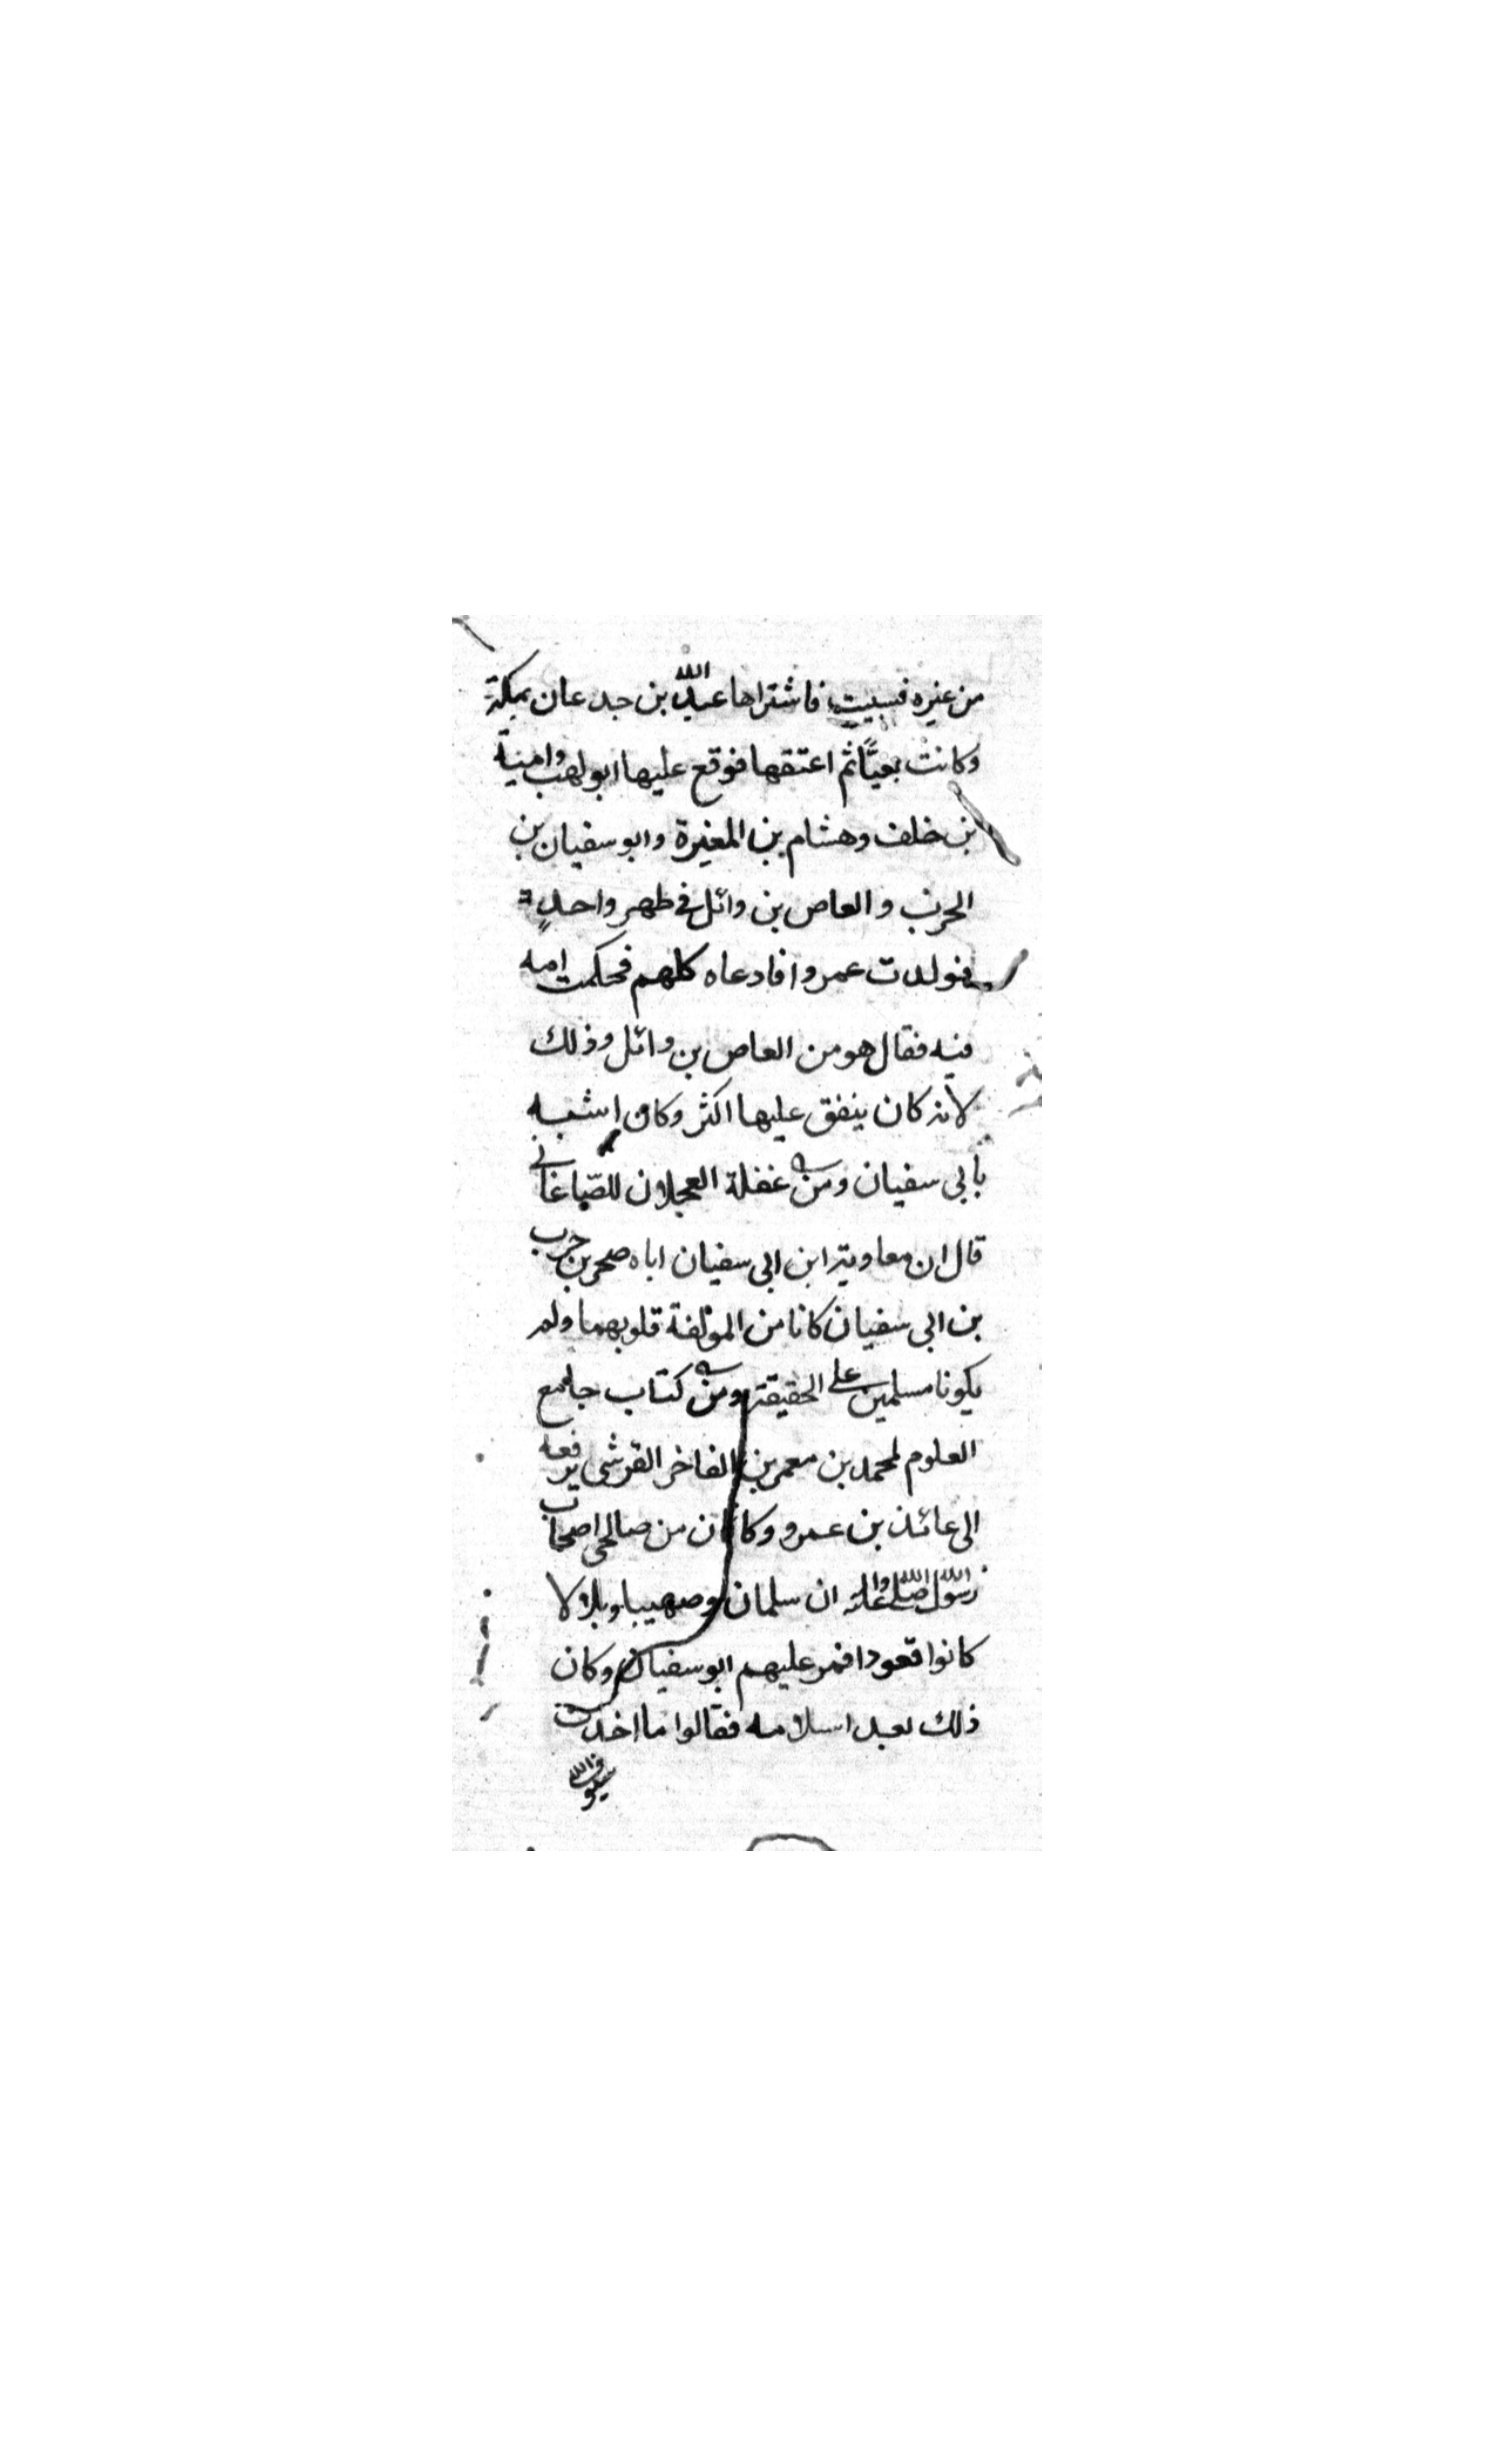 من عنزه فسبيت فاشتراها عبد الله بن جدعان بمكة
وكانت بغيًّا ثم اعتقها فوقع عليها ابو لهب وامية
بن خلف وهشام بن المغيرة وابو سفيان بن
الحرب والعاص بن وائل في طهر واحدٍ
فولدت عمروا فادعاه كلهم فحكمت امه
فيه فقال هو من العاص بن وائل وذلك
لانه كان ينفق عليها اكثر وكان اشبه
بابي سفيان ومن غفلة العجلان للصّباغاني
قال ان معاوية ابن ابي سفيان اباه صخر بن حرب
بن ابي سفيان كانا من المؤلفة قلوبهما ولم
يكونا مسلمين على الحقيقة ومن كتاب جامع
العلوم لمحمد بن معمر بن الفاخر القرشي يرفعه
الى عائذ بن عمرو وكان من صالحي اصحاب
رسول الله صلى الله عليه واله ان سلمان وصهيبا وبلالا
كانوا قعودا فمر عليهم ابو سفيان وكان
ذلك بعد اسلامه فقالوا ما اخذت
سيوف الله